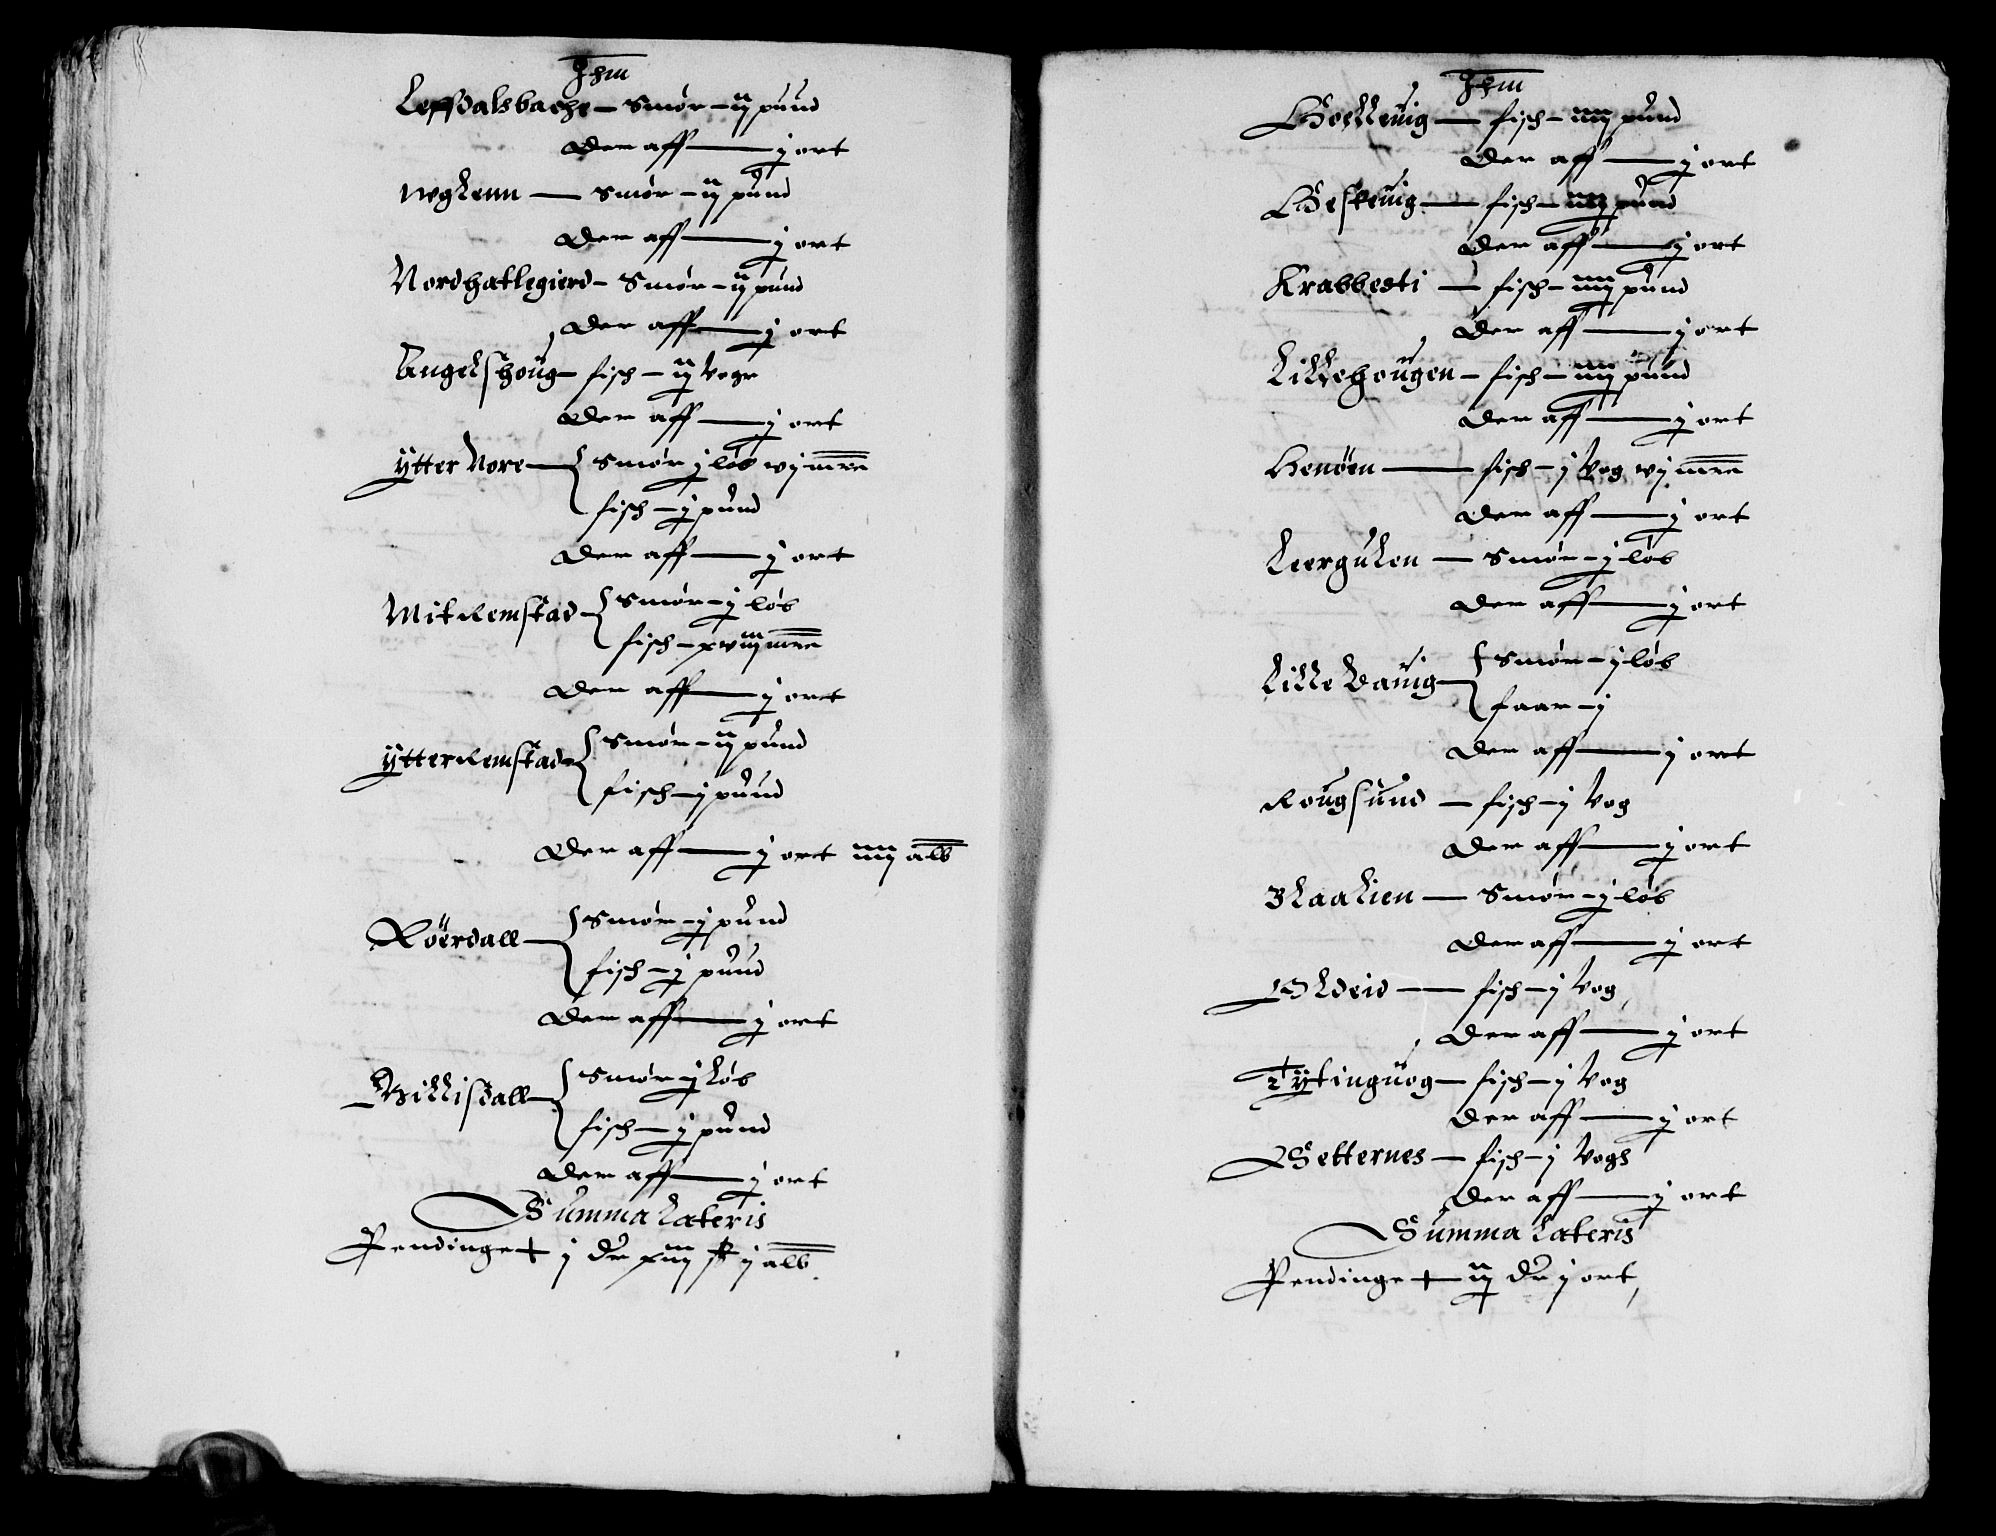 Ihm
Leffdalsbache – Smør – ij pund
Der aff — j ort
Nyglenn — Smør – ij pund
Der aff — j ort
Nordhatlegierd – Smør – ij pund
Der aff — j ort
Angelshoug – fisch – ij Voge
Der aff — j ort
Ytter Nore — Smør j løb vj mrc
fisch – j pund
Der aff — j ort
Mit Remstad – Smør – j løb
fisch – xviij mrc
Der aff — j ort
Ytter Remstad – Smør – ij pund
fisch – j pund
Der aff — j ort iiij alb
Röerdall — Smør – j pund
fisch – j pund
Der aff — j ort
Billisdall — Smør j løb
fisch – j pund
Der aff — j ort
Summa Lateris
Pendinge + j dr xiij sk j alb
Ihm
Hoelleuig — fisch – iiij pund
Der aff — j ort
Geskeuig — fisch – iiij pund
Der aff — j ort
Krabbesti — fisch – iiij pund
Der aff — j ort
Lillehougen – fisch – iiij pund
Der aff — j ort
Henöen — fisch – j Vog vj mrc
Der aff — j ort
Leergulen — Smør – j løb
Der aff — j ort
Lille Bauig — Smør – j løb
faar – j
Der aff — j ort
Rougsund — fisch – j Vog
Der aff — j ort
Blaalien — Smør – j løb
Der aff — j ort
Oldeid — fisch – j Vog
Der aff — j ort
Tytinguog — fisch – j Vog
Der aff — j ort
Setternes — fisch – j Vogh
Der aff — j ort
Summa Lateris
Pendinge + iij dr j ort